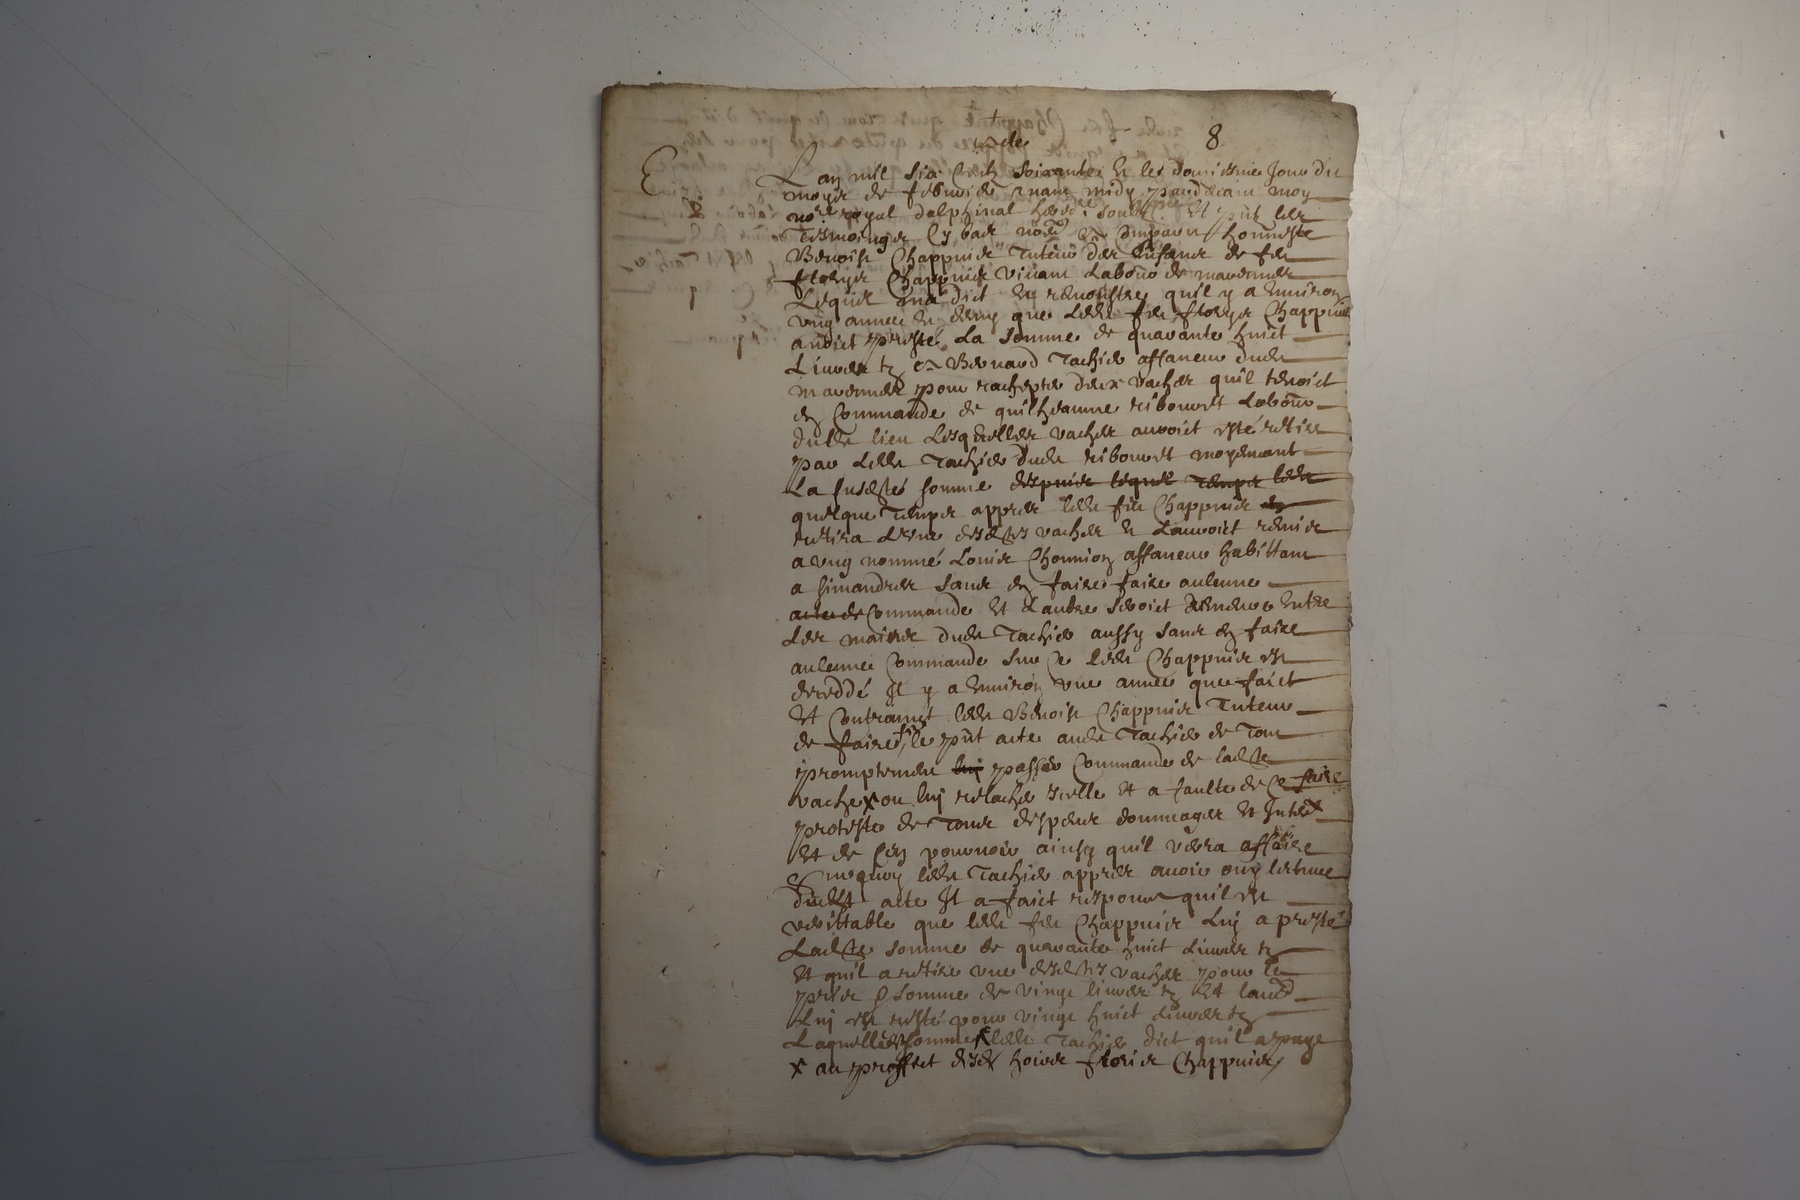 Acte
8
Lan mil six Centz soixante et le douziesme Jour du
moys de febvrier avant midy pardevant moy
no.re royal delphinal hered.re soubz.ne et pūt les
Tesmoings Cy bas
Benoist Chappuis Tuteur des Enfans de feu
fleurys Chappuis vivant Labour de marennes
Lequel ma dict et remonstre quil y a Environ
ung annee et demy que ledt feu fleurys Chappuis
auoict presté La somme de quarante huict
Liures tz a Bernard Tachier affaneur dudt
marennes pour rachepter deux vaches quil tenoict
en Commande de guilheaume ribouvet Labour
dudt lieu Lesquelles vaches auuoict esté retire
par ledt Tachier dudt ribouvet moyenant
La susdite somme despuis lequel Temps ledt
quelque Temps appres ledt feu Chappuis en
retira Lune desdtes vaches et Lauuoict remis
a ung nommé Louis Chonnion affaneur habittant
a simandres sans en faire faire aulcune
acte de Commande et Lautre seroict demeure Entre
Les mains dudt Tachier aussy sans en faire
aulcune Commande sur Ce ledt Chappuis est
decedde Il y a Environ une annee que faict
et Contrainct ledt Benoist Chappuis Tuteur
de faire le pūt acte audt Tachier de Tout
promptement luy passer Commande de ladte
vache x ou luy relacher icelle et a faulte de Ce faire
proteste de Tous despens dommages et Intertz
et de sen pourvoir ainsy quil verra affaire
Surquoy ledt Tachier appres avoir ouy lecture
dudt acte Il a faict response quil est
verittable que ledt feu Chappuis Luy a presté
Ladte somme de quarante huict Liures tz
et quil a retire une desdtes vaches pour le
pris et somme de vingt liures tz et
Luy est resté pour vingt huict Liures tz
Laquelle somme x ledt Tachier dict quil a paye
x au proffict desdt hoirs fleuris Chappuis